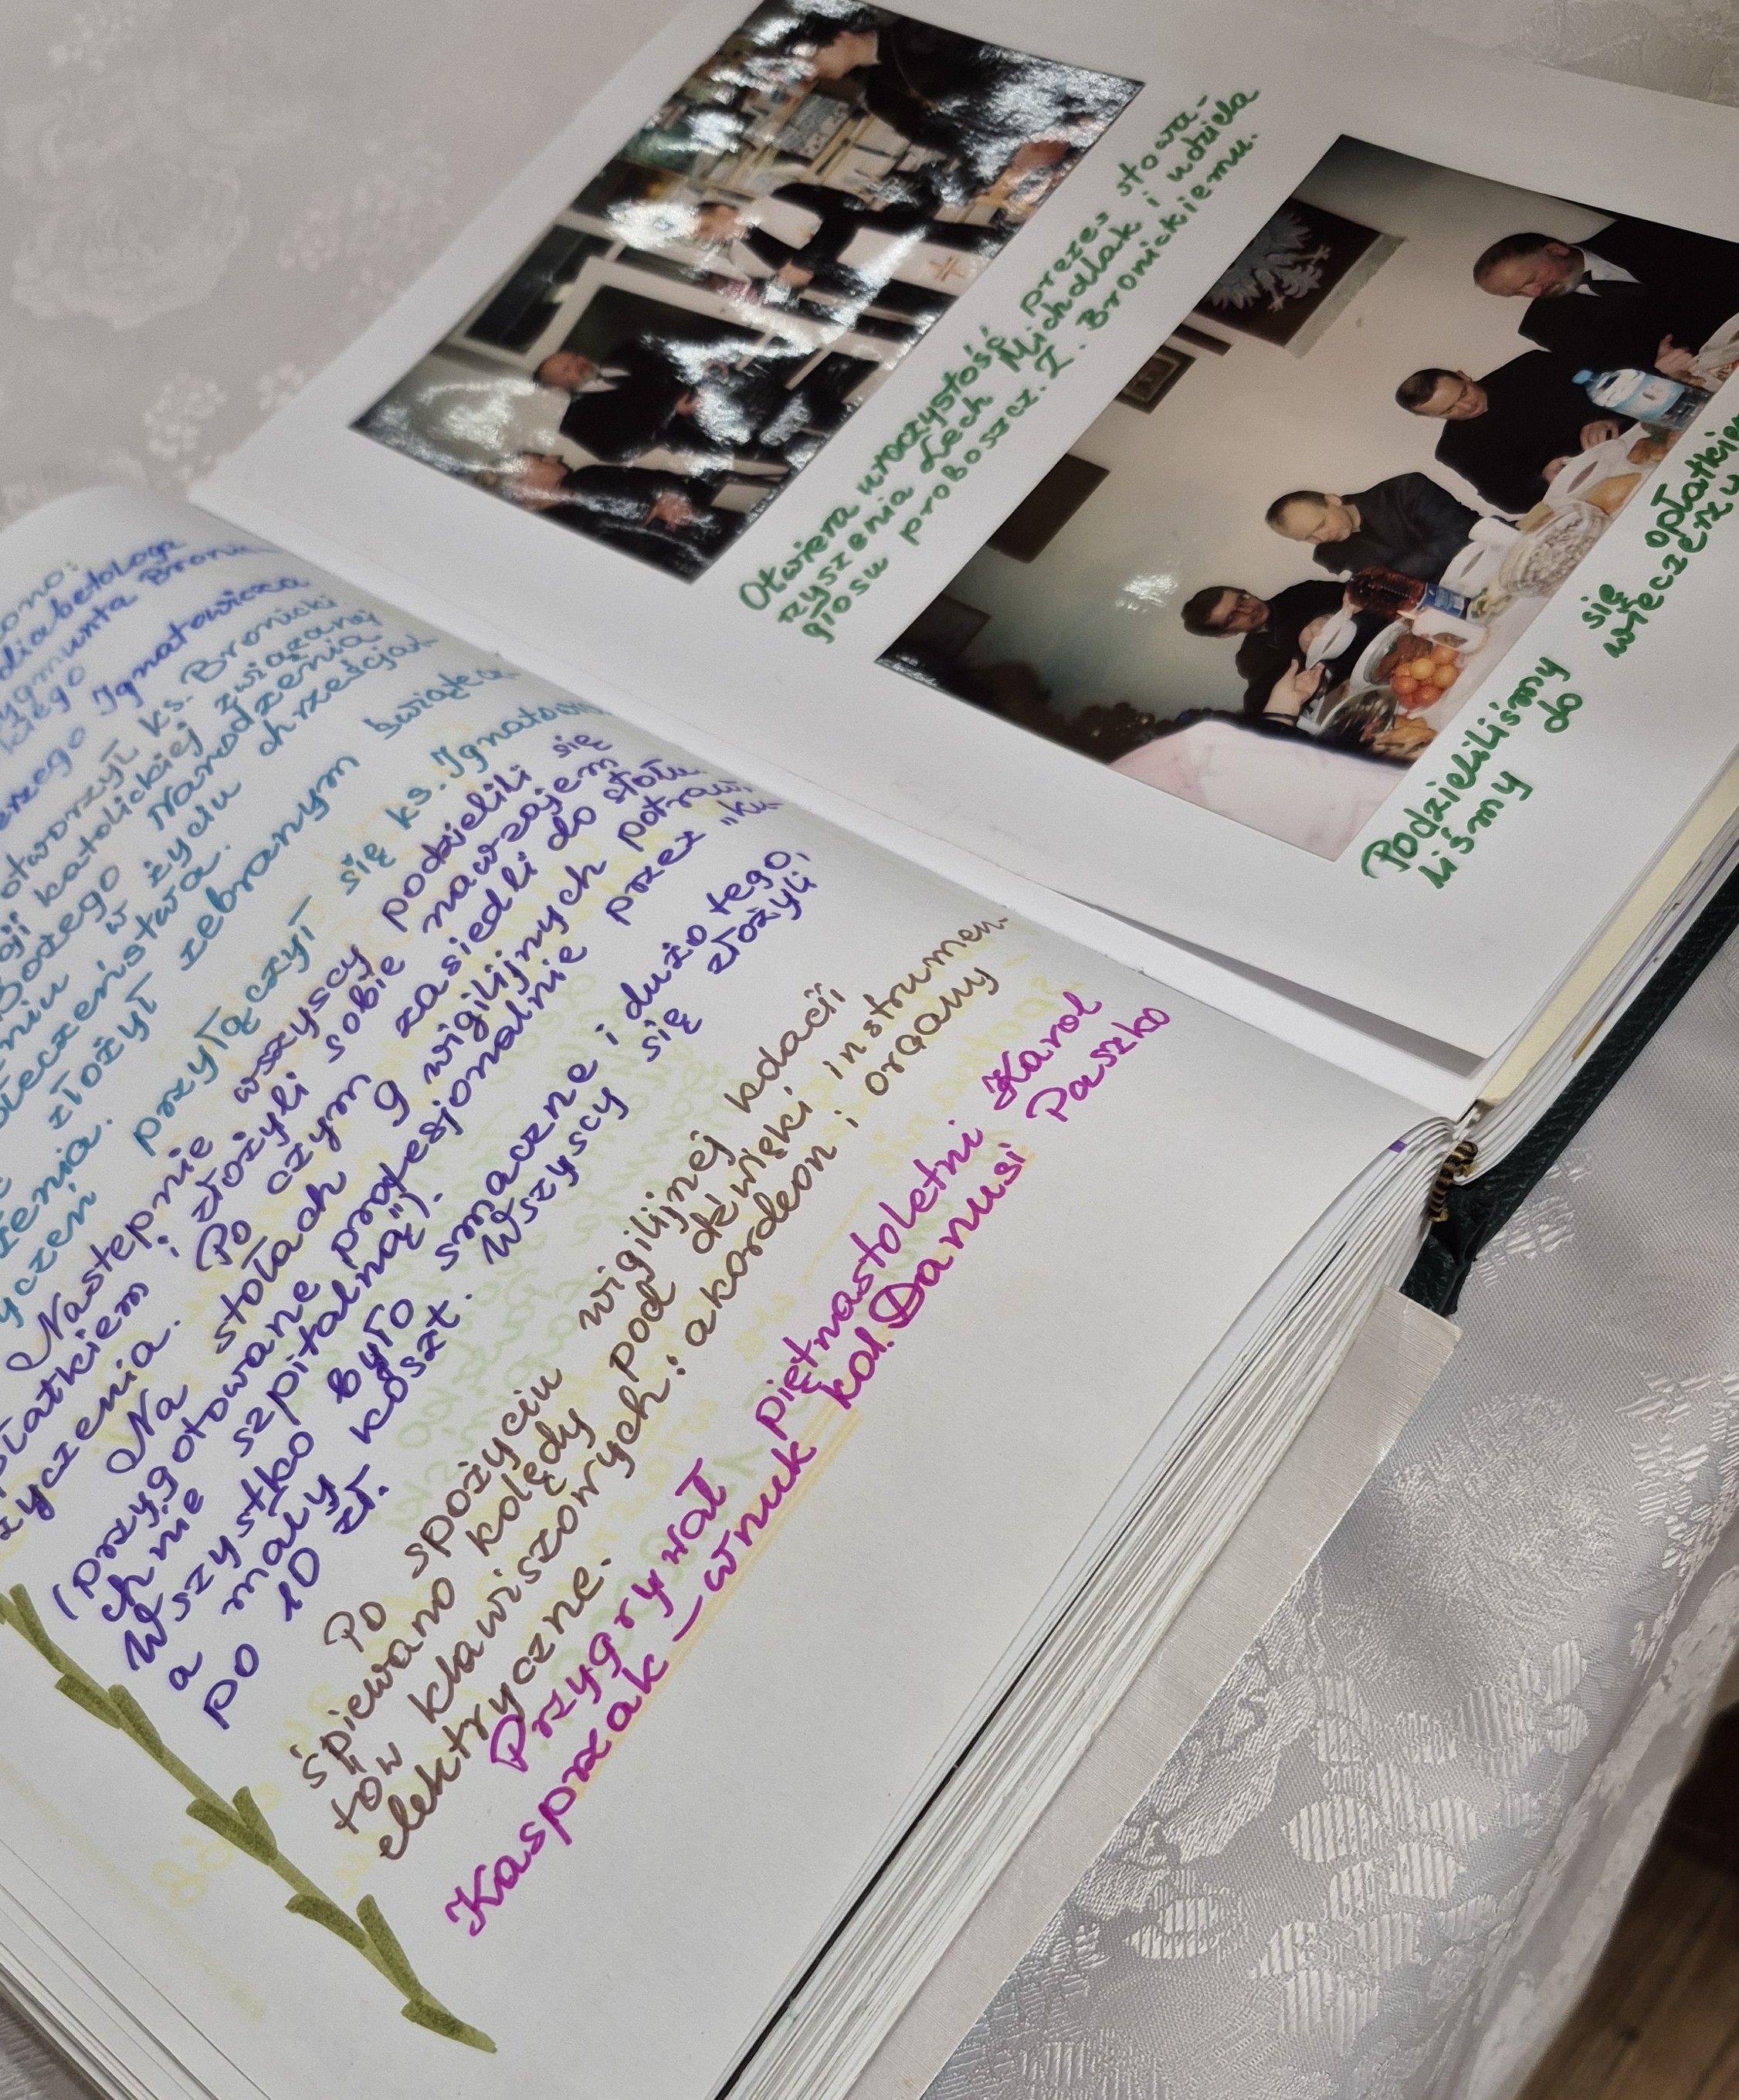 ono:
diabetologa
ygmunta Bronic
kiego
erzego Ignatowicza
otworzył ks. Bronicki
katolickiej związanej
Bożego Narodzenia
niu w życiu chrześcijań
ołeczeństwa.
złożył zebranym świątecz
zenia.
yczeń przyłączył się ks. Ignatowi
Następnie wszyscy podzielili się
opłatkiem i złożyli sobie nawzajem
życzenia. Po czym zasiedli do stołu.
Na stołach 9 wigilijnych potraw
(przygotowane profesjonalnie przez "ku-
chnie szpitalną").
Wszystko było smaczne i dużo tego,
a mały koszt. Wszyscy się złożyli
po 10 zł.
Po spożyciu wigilijnej kolacji
śpiewano kolędy pod dźwięki instrumen-
tów klawiszowych: akordeon i organy
elektryczne.
Przygrywał piętnastoletni Karol
Kasprzak – wnuk kol. Danusi Paszko
Otwiera uroczystość prezes stowa-
rzyszenia Lech Michalak i udziela
głosu proboszcz. Z. Bronickiemu.
Podzieliliśmy się opłatkiem
liśmy do wieczerzy